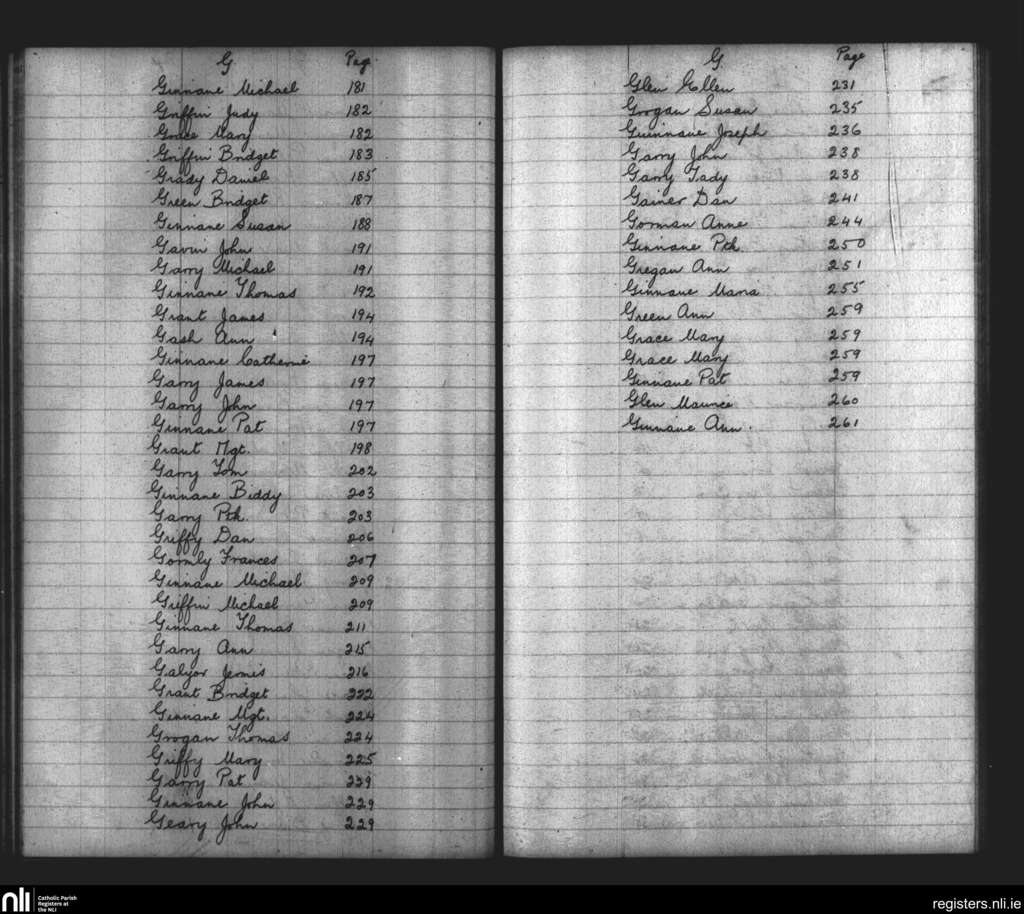 G Page
Ginnane Michael 181
Griffin Judy 182
Grace Mary 182
Griffin Bridget 183
Grady Daniel 185
Green Bridget 187
Ginnane Susan 188
Gavin John 191
Garry Michael 191
Ginnane Thomas 192
Grant James 194
Gash Ann 194
Ginnane Catherine 197
Garry James 197
Garry John 197
Ginnane Pat 197
Grant Mgt. 198
Garry Tom 202
Ginnane Biddy 203
Garry Ptk. 203
Griffy Dan 206
Gormly Frances 207
Ginnane Michael 209
Griffin Michael 209
Ginnane Thomas 211
Garry Ann 215
Galyor 216
Grant Bridget 222
Ginnane Mgt. 224
Grogan Thomas 224
Griffy Mary 225
Garry Pat
Ginnane John 229
Geary John 229
G Page
Glen Ellen 231
Grogan Susan 235
Guinnane Joseph 236
Garry John 238
Garry Tady 238
Gainer Dan 241
Gorman Anne 244
Ginnane Ptk. 250
Gregan Ann 251
Ginnane Maria 255
Green Ann 259
Grace Mary 259
Grace Mary 259
Ginnane Pat 259
Glen Maurice 260
Ginnane Ann. 261
nli Catholic Parish
Registers at
the NLI
registers.nli.ie